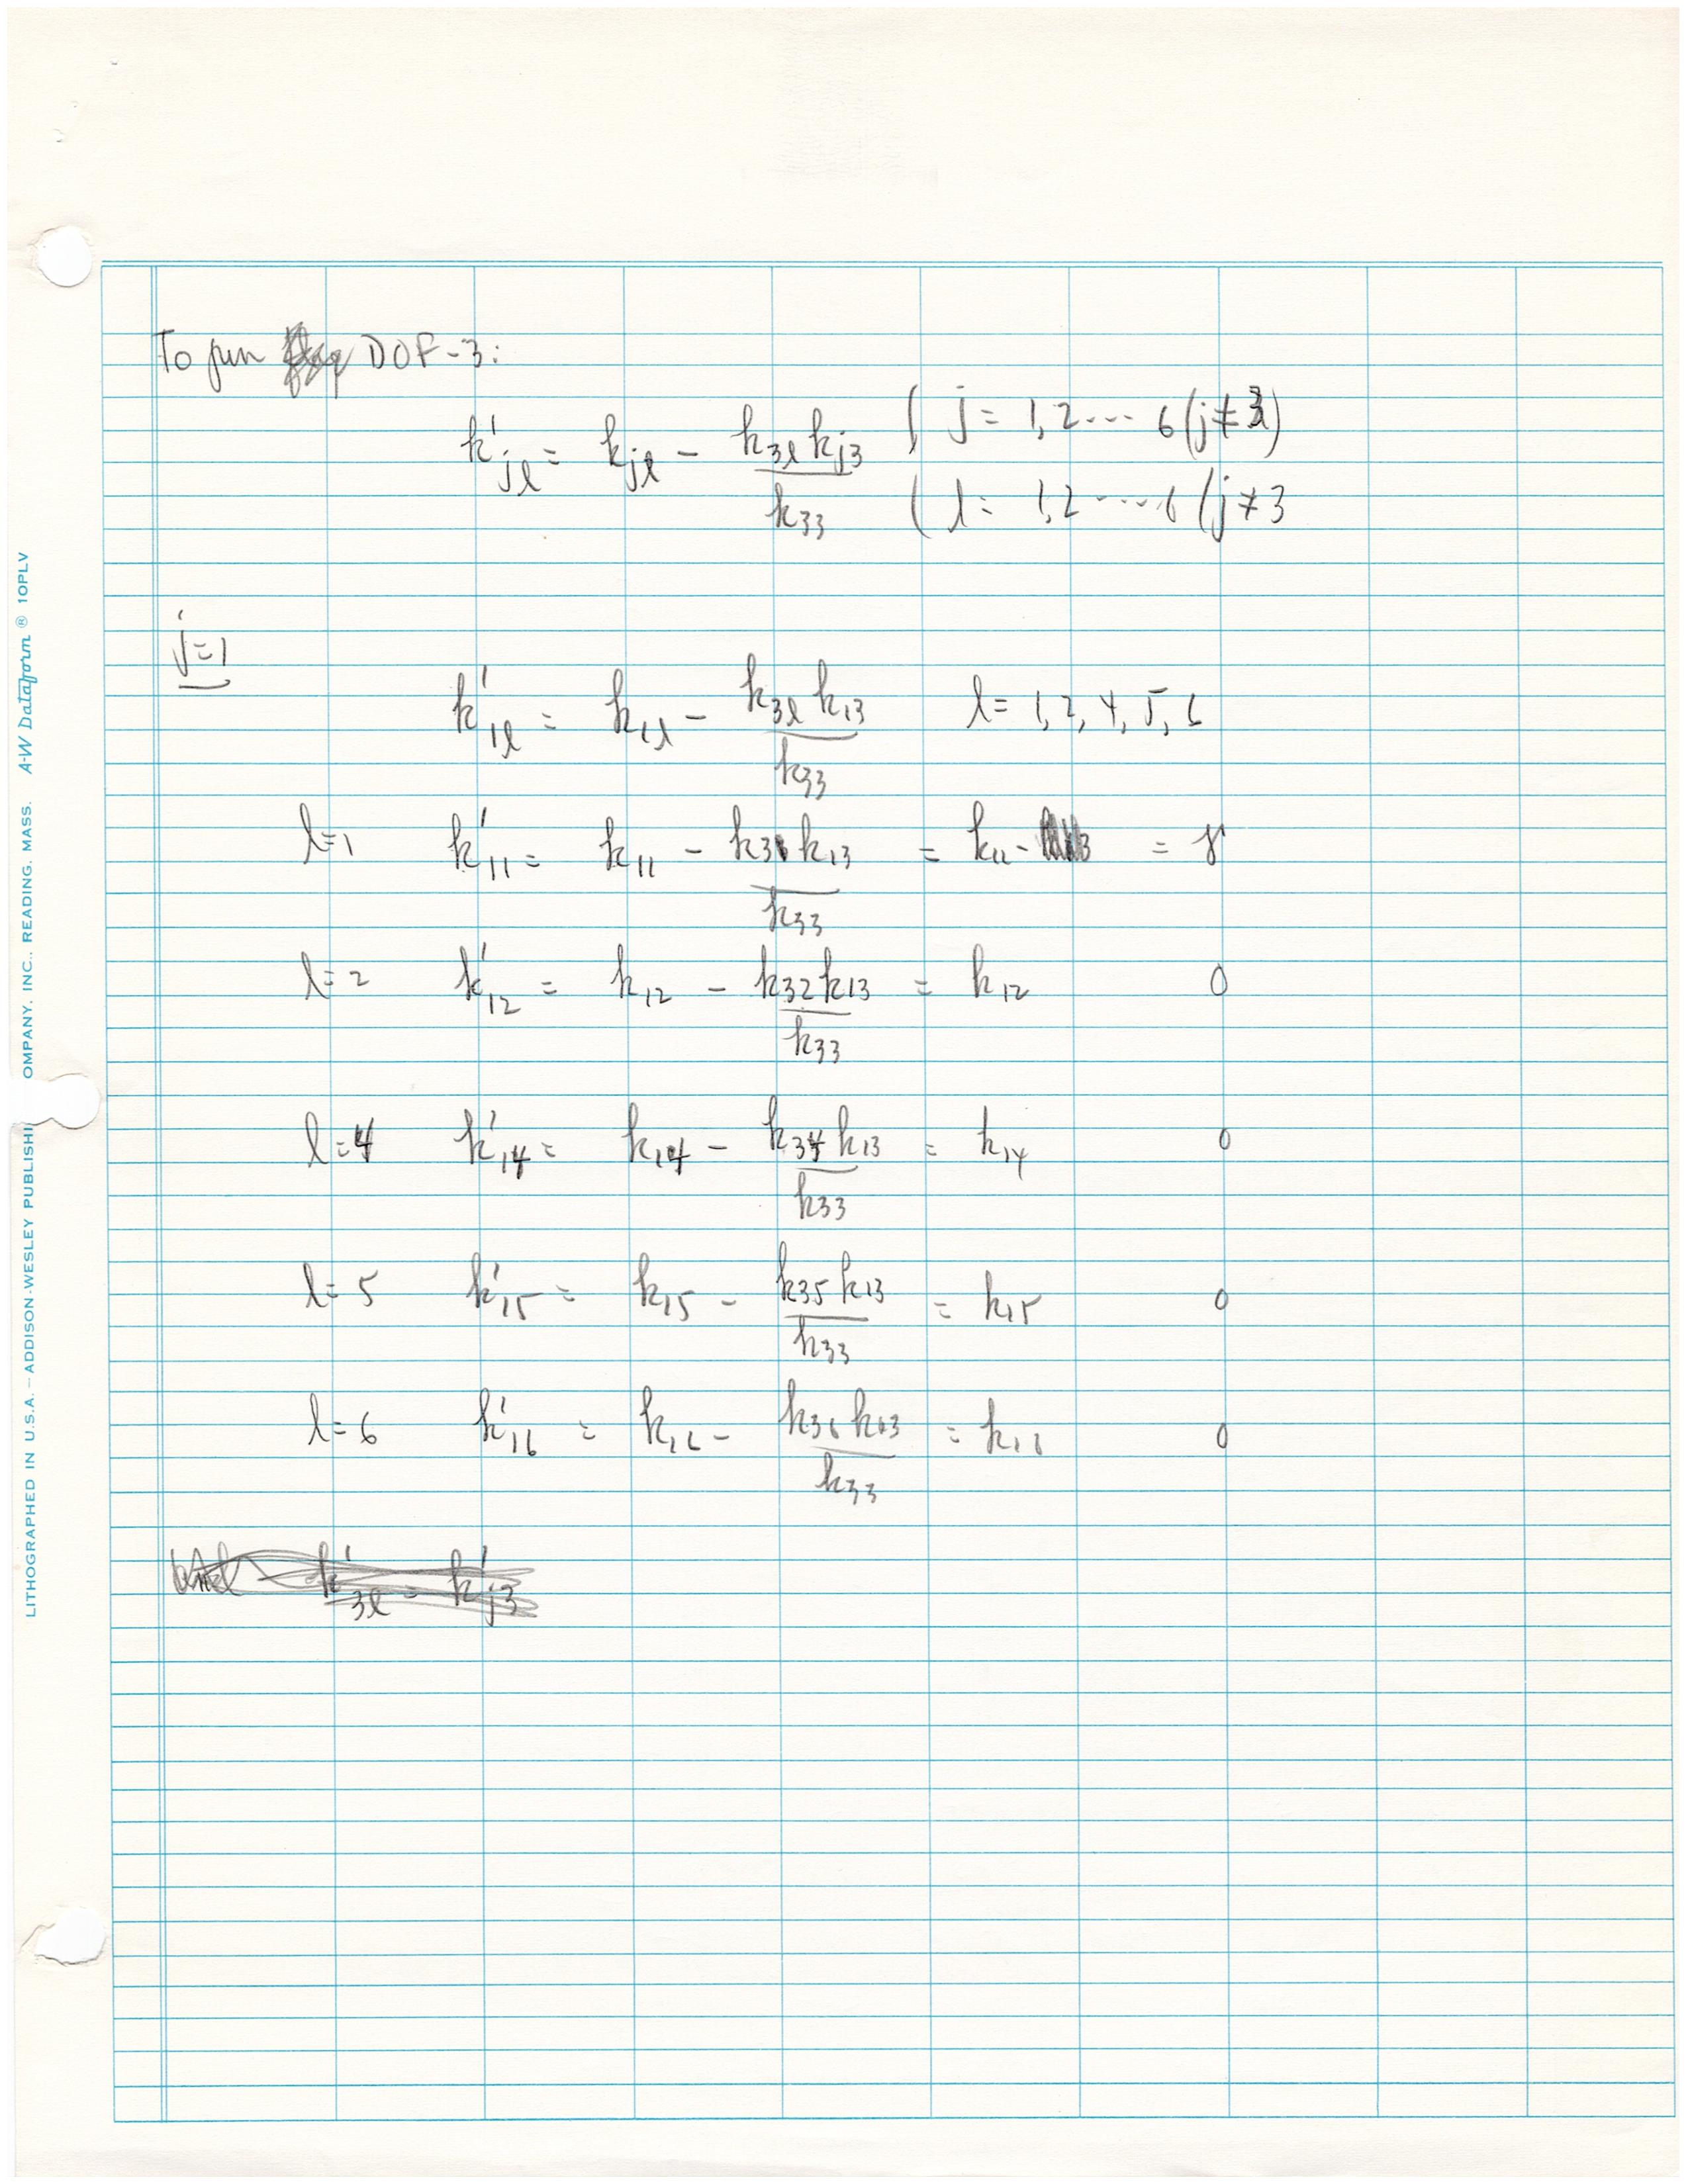 To pin DOF-3:
k'jl = kjl - k3l kj3 / k33 ( j = 1,2 ---- 6 (j≠3)
( l = 1,2 ----- 6 (j≠3
j=1
k'1l = k1l - k3l k13 / k33 l = 1, 2, 4, 5, 6
l=1 k'11 = k11 - k31 k13 / k33 = k11 - =
l=2 k'12 = k12 - k32 k13 / k33 = k12 0
l=4 k'14 = k14 - k34 k13 / k33 = k14 0
l=5 k'15 = k15 - k35 k13 / k33 = k15 0
l=6 k'16 = k16 - k36 k13 / k33 = k16 0
k'3l = k'j3
LITHOGRAPHED IN U.S.A. — ADDISON-WESLEY PUBLISHI OMPANY, INC., READING, MASS. A-W Dataform ® 10PLV